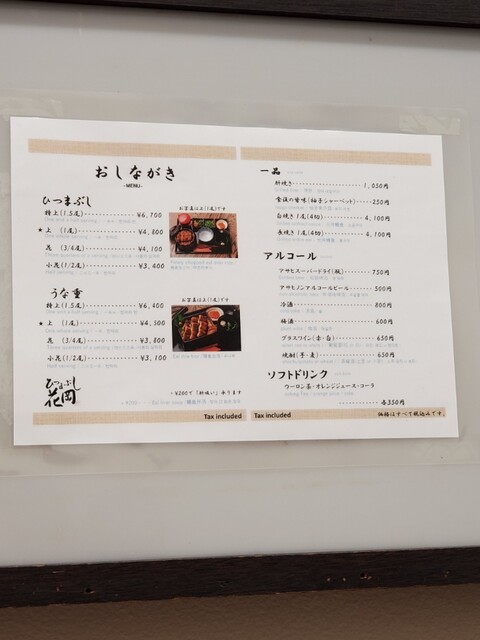 おしながき
-MENU-
ひつまぶし
特上(1.5尾) ¥6,700
One and a half serving
★ 上 (1尾) ¥4,800
One whole serving
花 (3/4尾) ¥4,100
Three quarters of a serving
小花(1/2尾) ¥3,400
Half serving
お写真は上(1尾)です
うな重
特上(1.5尾) ¥6,400
One and a half serving
★ 上 (1尾) ¥4,500
One whole serving
花 (3/4尾) ¥3,800
Three quarters of a serving
小花(1/2尾) ¥3,100
Half serving
お写真は上(1尾)です
ひつまぶし
花岡
+¥200で「肝吸い」承ります
Tax included
一品
肝焼き 1,050円
食後の甘味(柚子シャーベット) 250円
白焼き1尾(4切) 4,100円
長焼き1尾(4切) 4,100円
アルコール
アサヒスーパードライ(瓶) 750円
アサヒノンアルコールビール 500円
冷酒 800円
梅酒 600円
グラスワイン(赤・白) 650円
焼酎(芋・麦) 650円
ソフトドリンク
ウーロン茶・オレンジジュース・コーラ
各350円
Tax included
価格はすべて税込みです